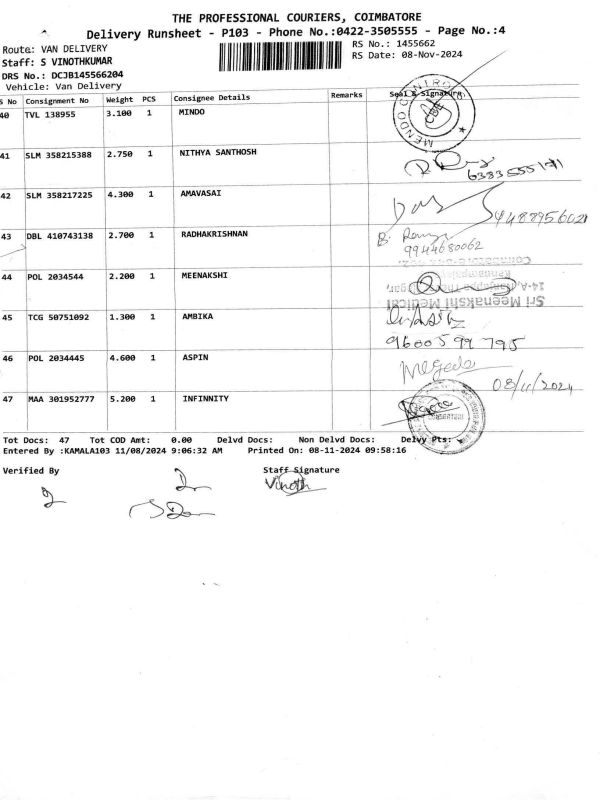 THE PROFESSIONAL COURIERS, COIMBATORE
Delivery Runsheet - P103 - Phone No.:0422-3505555 - Page No.:4
Route: VAN DELIVERY
RS No.: 1455662
Staff: S VINOTHKUMAR
RS Date: 08-Nov-2024
DRS No.: DCJB145566204
Vehicle: Van Delivery
S No Consignment No Weight PCS Consignee Details Remarks Seal & Signature
40 TVL 138955 3.100 1 MINDO
MENDO
41 SLM 358215388 2.750 1 NITHYA SANTHOSH
42 SLM 358217225 4.300 1 AMAVASAI
43 DBL 410743138 2.700 1 RADHAKRISHNAN
9944680062
44 POL 2034544 2.200 1 MEENAKSHI
Sri Meenakshi Medical
45 TCG 50751092 1.300 1 AMBIKA
9600599795
46 POL 2034445 4.600 1 ASPIN
08/11/2024
47 MAA 301952777 5.200 1 INFINNITY
Tot Docs: 47 Tot COD Amt: 0.00 Delvd Docs: Non Delvd Docs: Delvy Pts:
Entered By :KAMALA103 11/08/2024 9:06:32 AM Printed On: 08-11-2024 09:58:16
Verified By Staff Signature
Vinoth